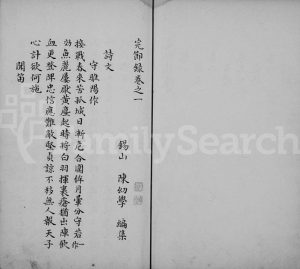 完節錄卷之一
錫山 陳幼學 編集
詩文
守睢陽作
接戰春來苦孤城日漸危合圍侔月暈分守若
魚麗屢厭黃塵起時將白羽揮裹瘡猶出陣飲
血更登陴忠信應難敵堅貞諒不移無人報天子
心計欲何施
聞笛
FamilySearch